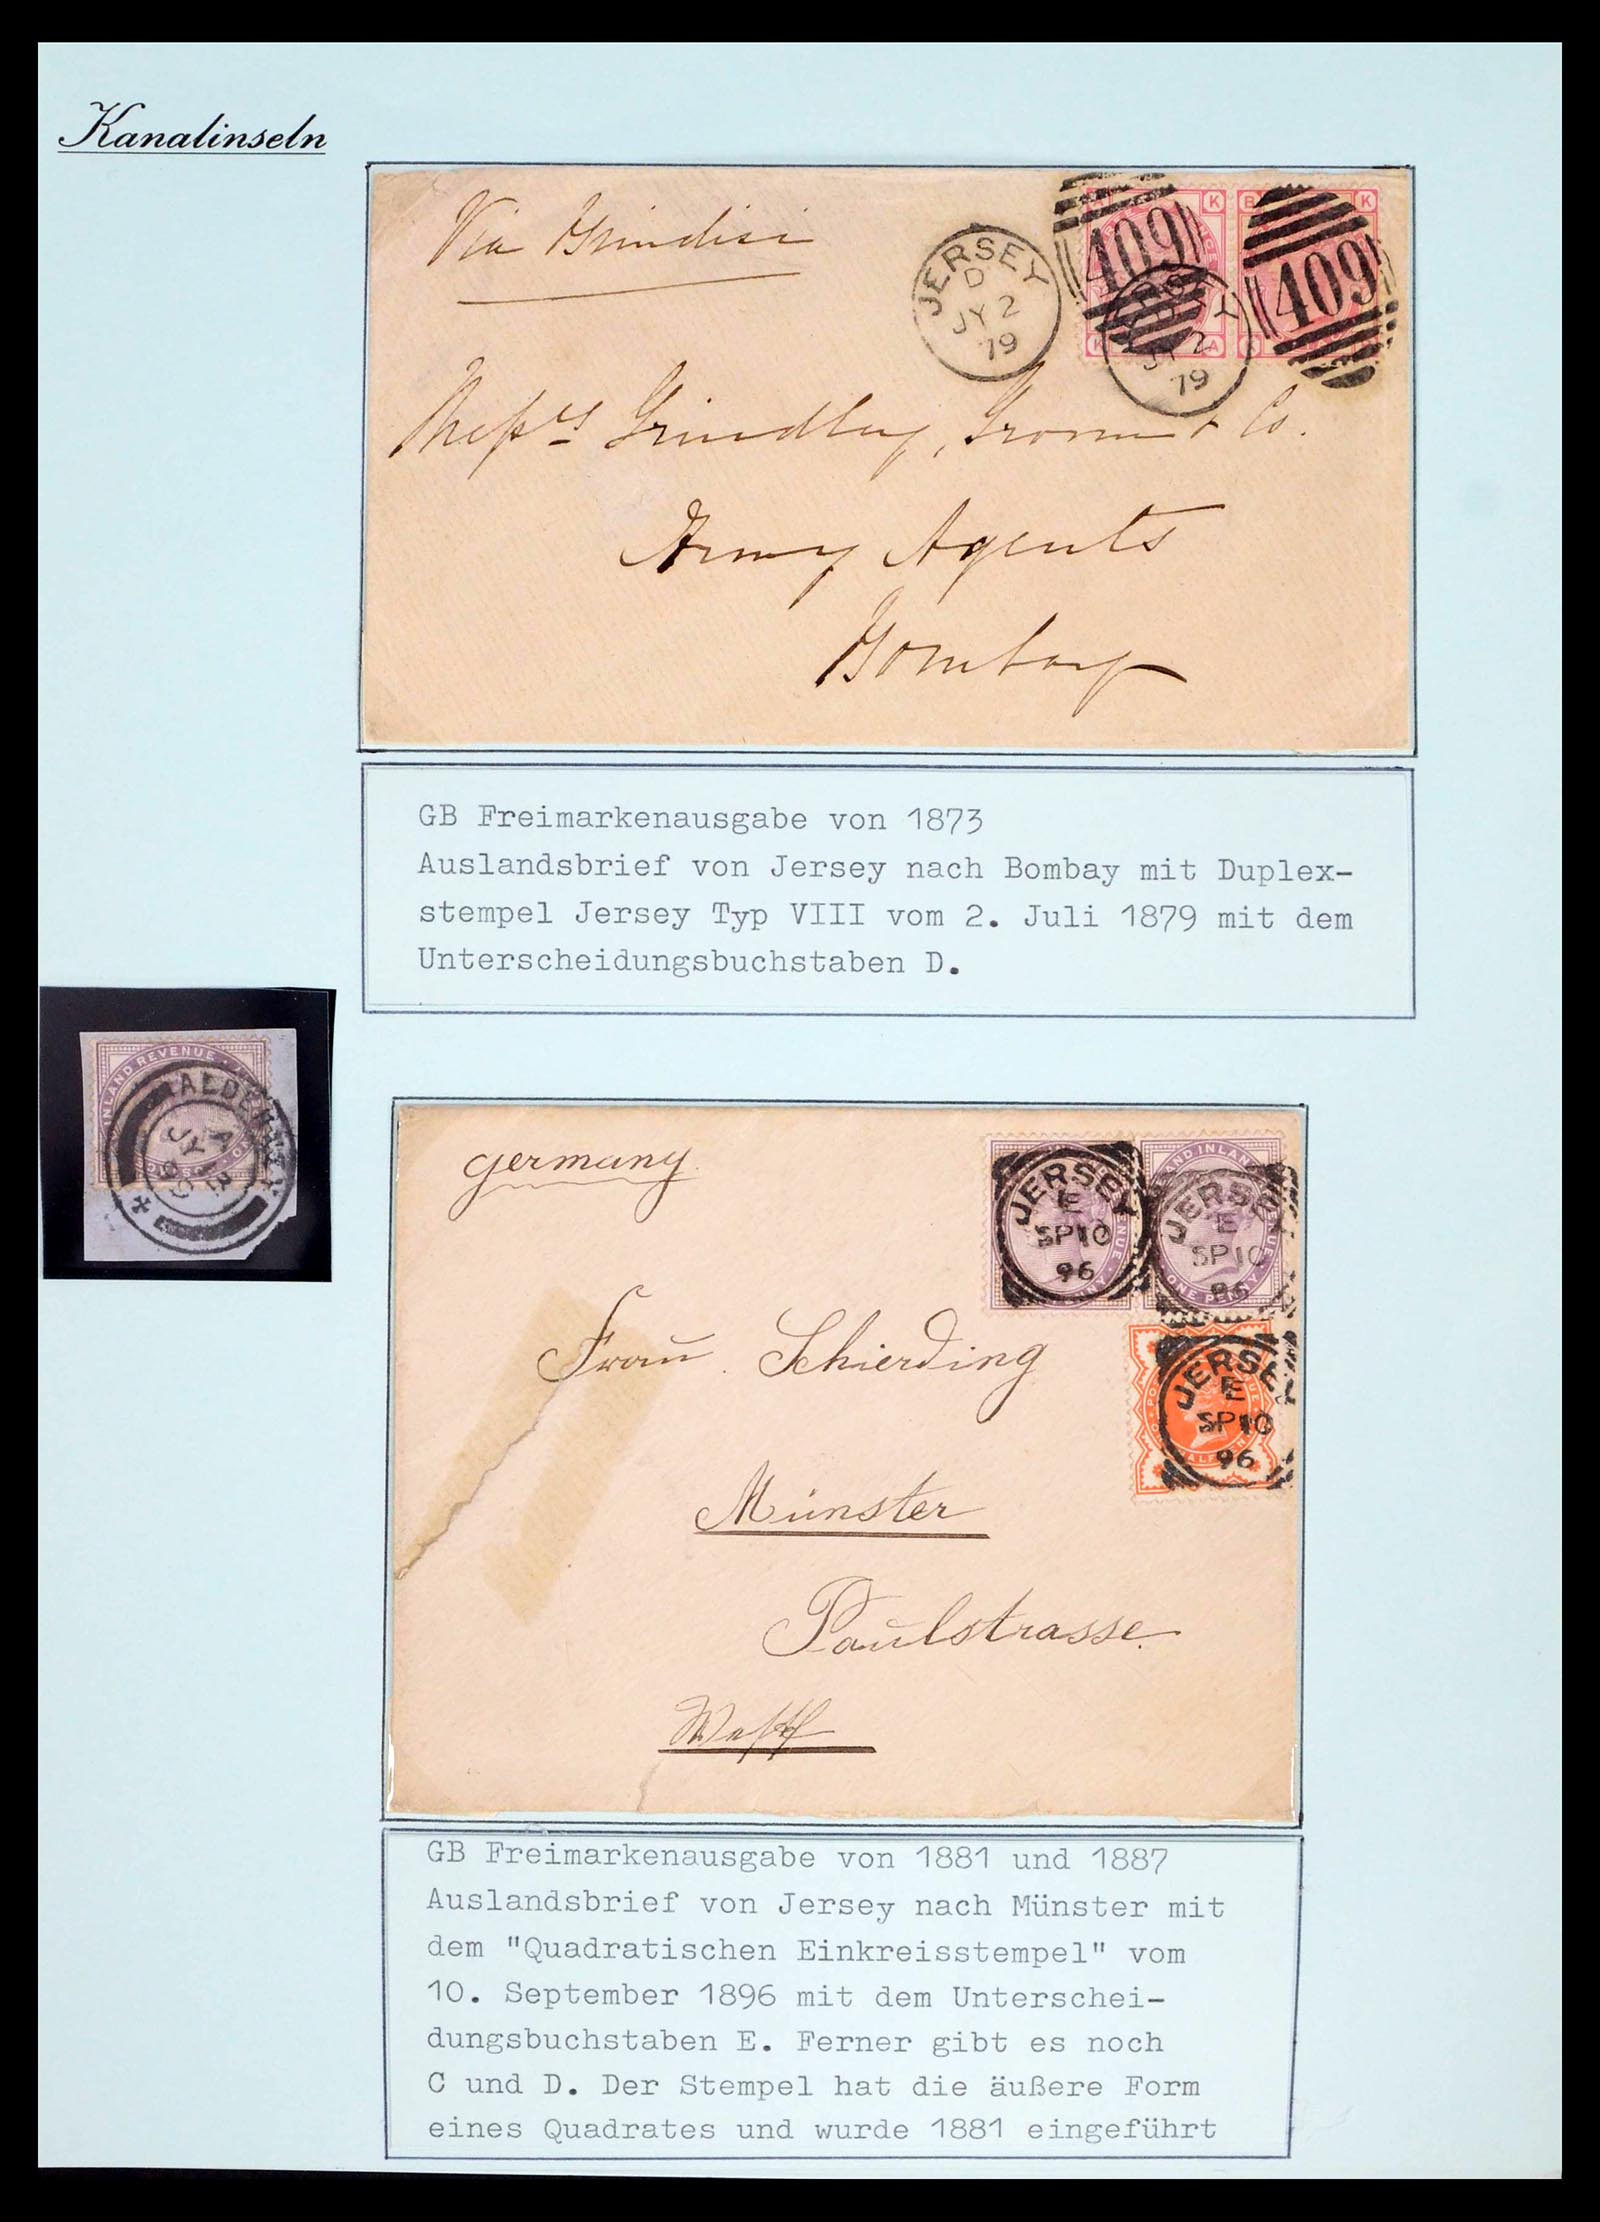 Kanalinseln
Via Brindisi
JERSEY
D
JY 2
79
409
409
K
B K
K A
JY 2
79
Messrs Grindlay, Groom & Co.
Army Agents
Bombay
GB Freimarkenausgabe von 1873
Auslandsbrief von Jersey nach Bombay mit Duplex-
stempel Jersey Typ VIII vom 2. Juli 1879 mit dem
Unterscheidungsbuchstaben D.
INLAND REVENUE
ALDERNEY
A
JY
germany.
JERSEY
E
SP 10
96
JERSEY
E
SP 10
96
INLAN
ONE PENNY
JERSEY
E
SP 10
96
Frau Schierding
Münster
Paulstrasse.
Westf
GB Freimarkenausgabe von 1881 und 1887
Auslandsbrief von Jersey nach Münster mit
dem "Quadratischen Einkreisstempel" vom
10. September 1896 mit dem Unterschei-
dungsbuchstaben E. Ferner gibt es noch
C und D. Der Stempel hat die äußere Form
eines Quadrates und wurde 1881 eingeführt